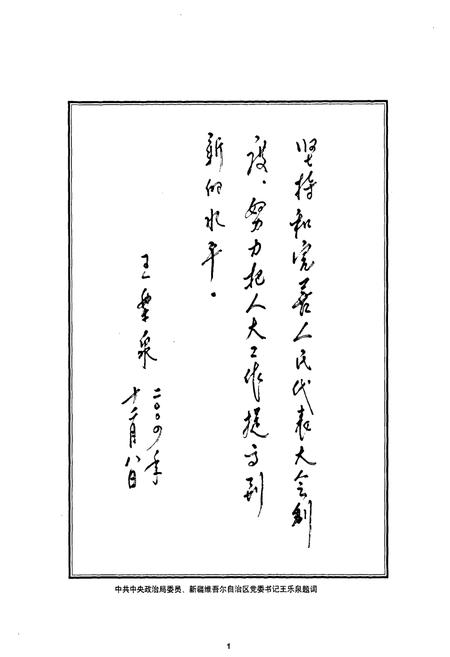 坚持和完善人民代表大会制
度、努力把人大工作提高到
新的水平。
王乐泉
二〇〇四年
十二月八日
中共中央政治局委员、新疆维吾尔自治区党委书记王乐泉题词
1